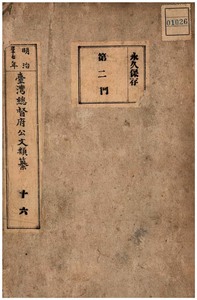 01026
永久保存
第二門
明治
臺灣總督府公文類纂
十六